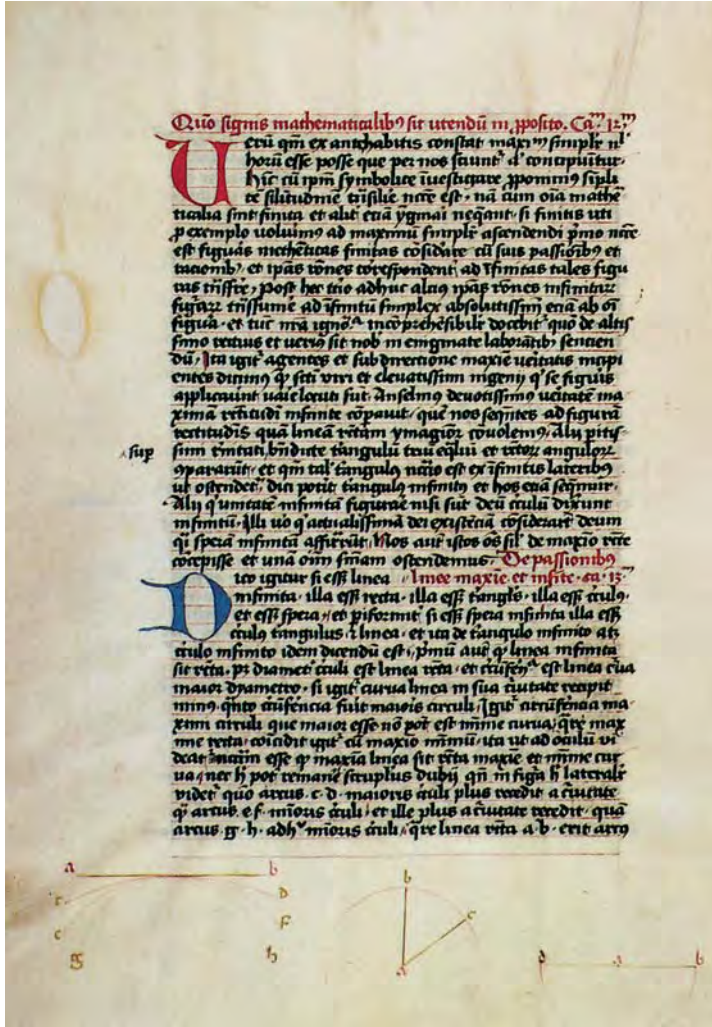 Quo signis mathematicalibꝰ sit utendū in ꝓposito. Ca^m 12^m
Uerū qm̄ ex antehabitis constat maximū simplr̄ nl̄
horū esse posse que per nos sciunt᷑ vl̄ concipiūtur·
hīc cū ipm̄ symbolice īvestigare ꝓponimꝰ simpli
tē silitudinē trāsilire ncc̄e est· nā cum oīa mathē
ticalia sint finita et alit̄ etiā ymagi neq̄ant· si finitis uti
ꝓ exemplo voluimꝰ ad maximū simplr̄ ascendendi pīmo ncc̄e
est figuās mathēticas finitas cōsidare cū suis passionibꝰ et
racionibꝰ, et ip̄as rōnes correspondent̄ ad īfinitas tales figu
ras trāsferre, post hec t̄tio adhuc alciꝰ ip̄as rōnes infinitarꝝ
figurarꝝ trāssume᷑ ad īfinitū simplex absolutissimū etiā ab oī
figura· et tūc nr̄a ignor^a incōprehēsibilr̄ docebit᷑ quō de altis
simo rectius et veriꝰ sit nob̄ in enigmate laborātibꝰ sentien
dū· Ita igit᷑ agentes et sub directione maxīe veritatis incipi
entes dicimꝰ qꝫ scti viri et elevatissimi ingenij q̄ se figuris
applicaverunt varie locuti sut· Anselmꝰ devotissimꝰ veritatē ma
ximā rectitudi infinite cōpavit· quē nos seq̄ntes ad figurā
rectitudīs quā lineā rectam ymagior cōvolemꝰ· Alij pitis
simi
sup̄
trinitati bn̄dicte triangulū triū eq̄liū et rectorꝝ angulorꝝ
cōpararūt· et qm̄ tal᷑ triangulꝰ nc̄rio est ex īfinitis lateribꝰ
ut ostendet᷑ dici poterit triangulꝰ infinitꝰ et hos etiā seq̄mur·
Alij q̄ unitatē infinitā figurare nisi sūt deū circulū dixerunt
infinitū· Illi vo q̄ actualissimā dei existēciā cōsiderarūt deum
q̄i sperā infinitā affirmarūt· Nos autē istos oēs sil᷑ de maxio recte
cōcepisse et unā oīm sniam ostendemus· De passionibꝰ
linee maxīe et infīte· ca· 13^m
Dico igitur si ess᷑ linea
infinita· illa ess᷑ recta· illa ess᷑ triāglꝰ· illa ess᷑ circulꝰ·
et ess᷑ spera· et pariformit᷑ si ess᷑ spera infinita illa ess᷑
circulꝰ triangulus· et linea· et ita de triangulo infinito atꝫ
circulo infinito idem dicendū est· pīmū autē qꝫ linea infinita
sit recta· pꝫ diamet᷑ circuli est linea recta· et circūferen^a est linea curva
maior dyametro· si igit᷑ curva linea in sua curvitate recipit
minꝰ· quanto circūferēcia fuit maioris circuli· Igit᷑ circūferēcia ma
ximi circuli que maior esse nō pot̄ est minīe curva· q̄re maxi
me recta· coicidit igit᷑ cū maxio minimū· ita ut ad oculū vi
deat᷑ nc̄cm esse qꝫ maxīa linea sit recta maxīe et minīe cur
va· nec h̄ pot̄ remanē᷑ scrupulus dubij qn̄ in figura h̄ laterali
videt᷑ quō arcus· c· d· maioris circuli plus recedit a curvitate
q̄ arcus· e· f· minoris circuli· et ille plus a curvitate recedit· quā
arcus· g· h· adhuc minoris circuli· q̄re linea recta a· b· erit arcꝰ
a b
c D
e F
g h
b
c
a
d a b